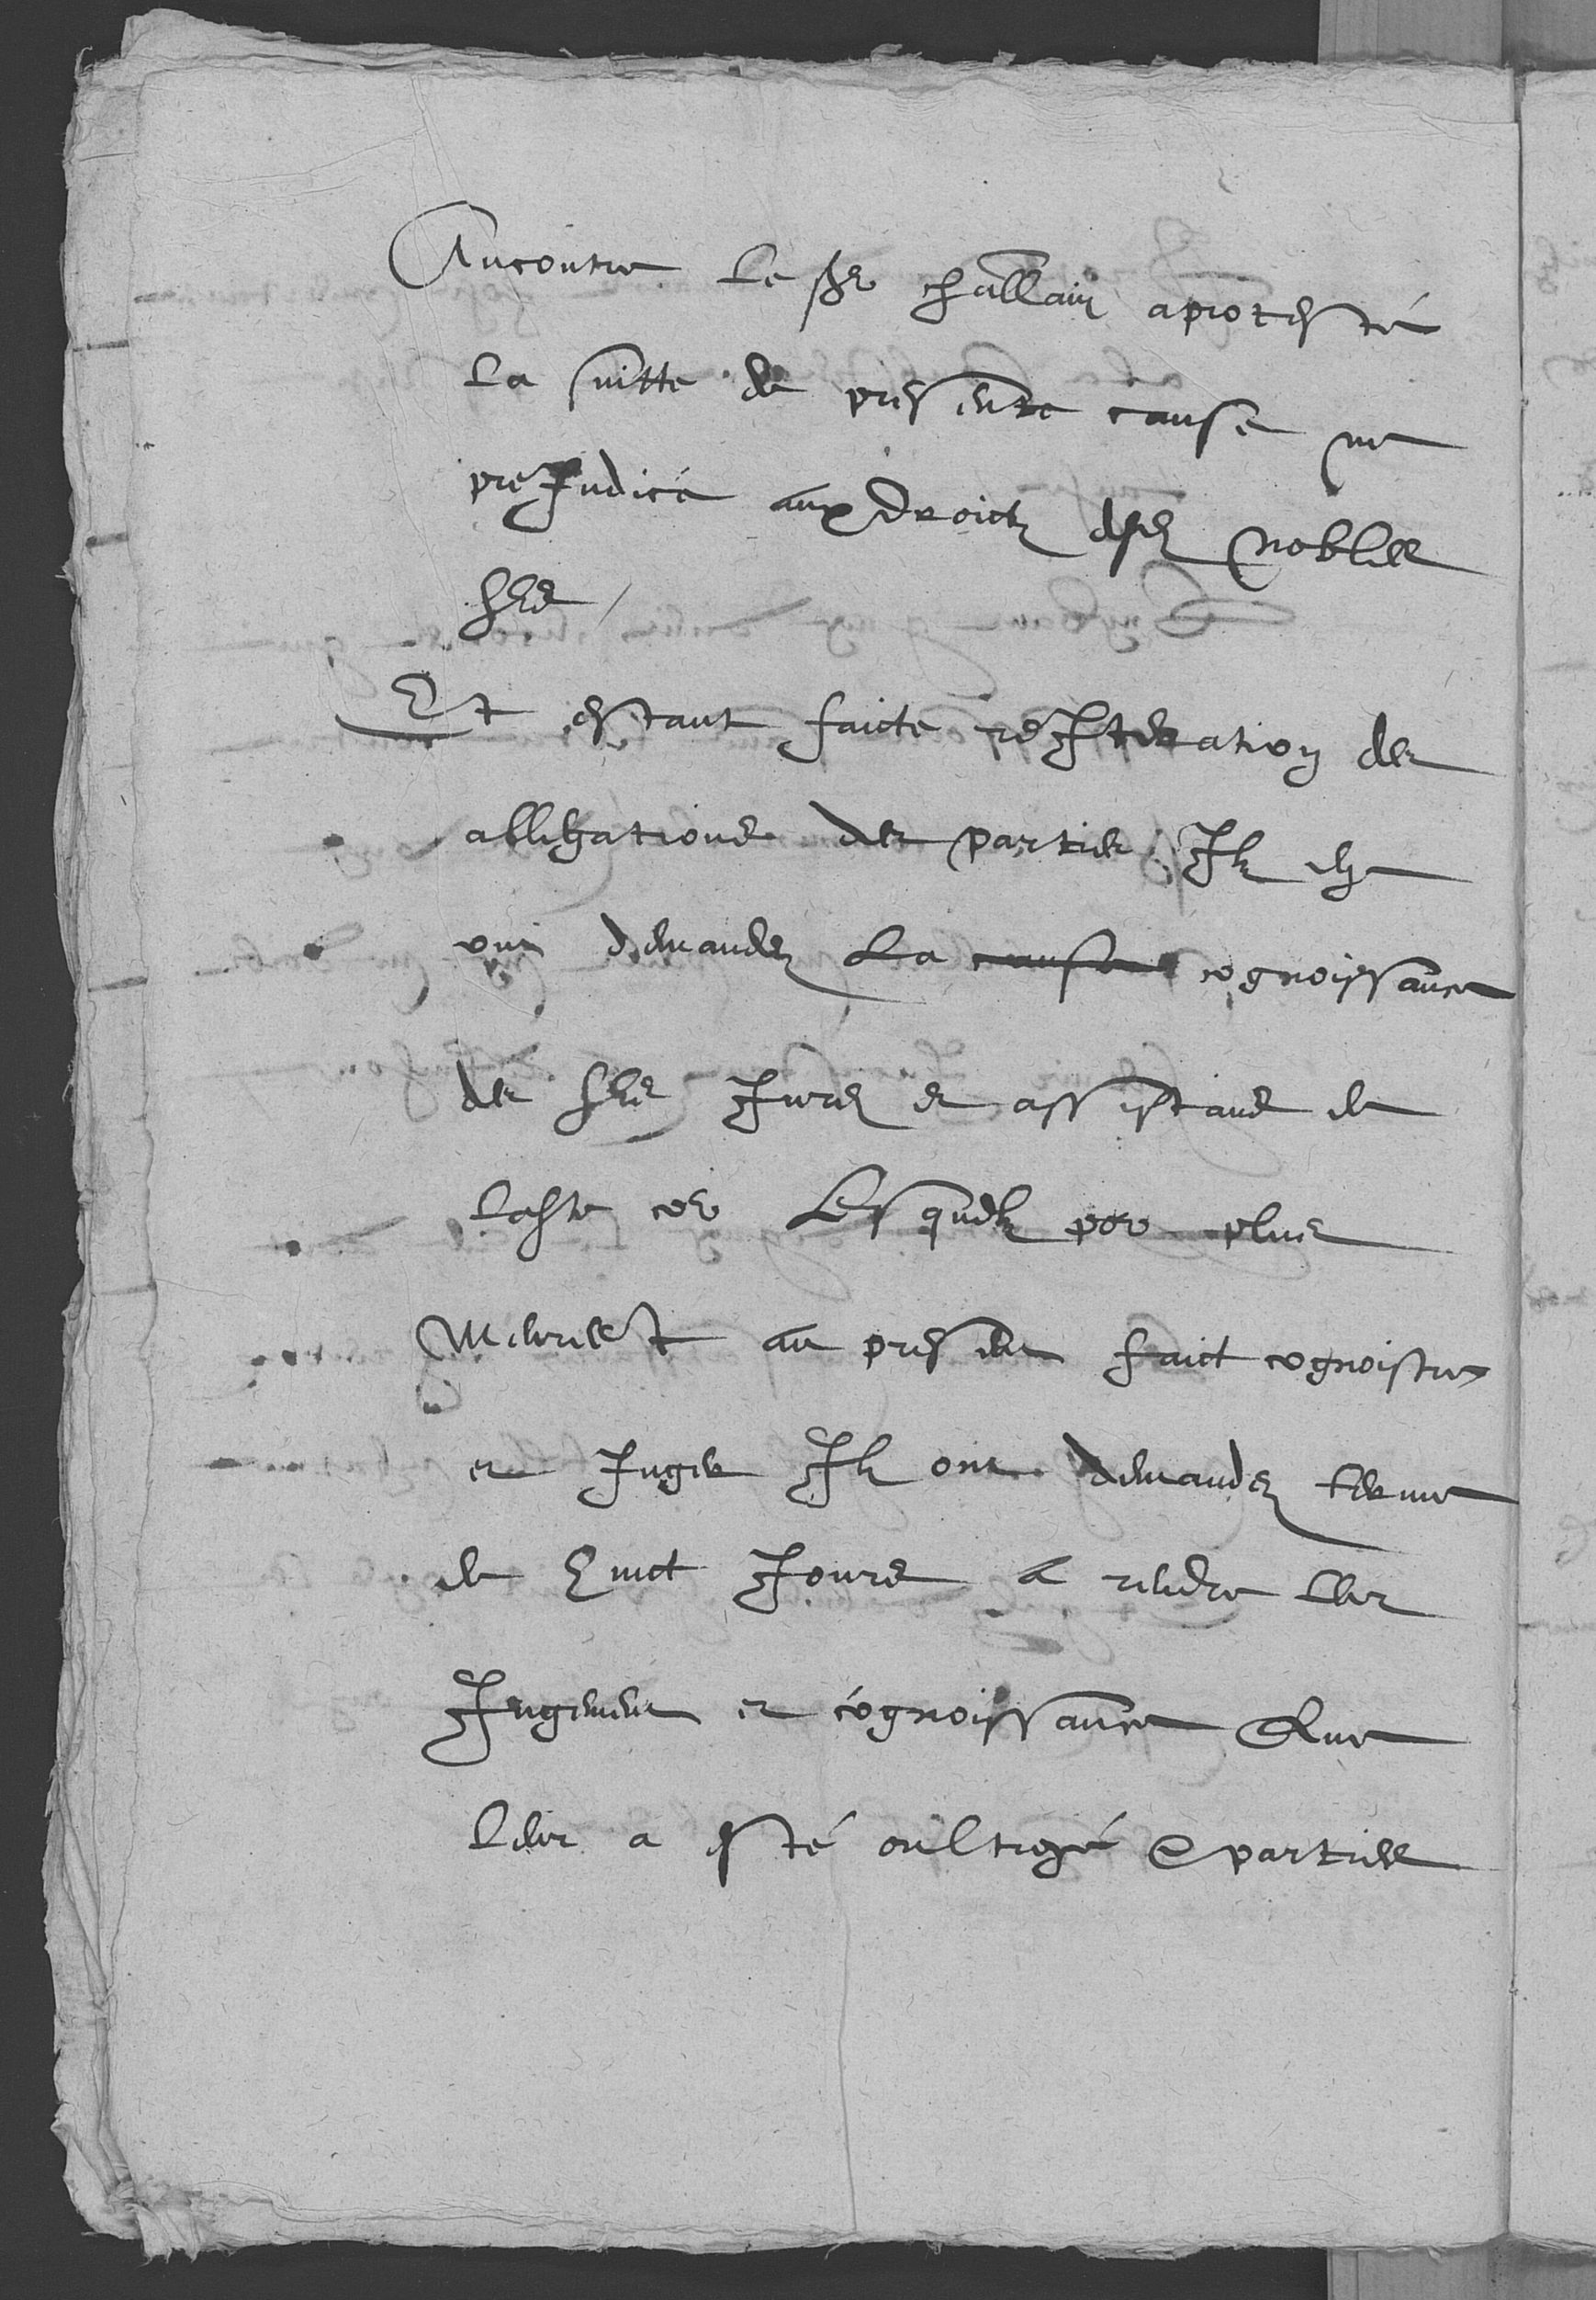 Aucontre le sr challain a protesté
la suitte de presente cause ne
preJudice aux droictz desd nobles
srs /
Et estant faicte reJteration des
allegations des parties Jlz
ont demandez La cause cognoissance
des srs Jurez et assistans de
ladte cor Lesquelz por plus
Meurelt au present faict cognoistre
et Juger Jlz ont demandez terme
de huict Jours a rendre ler
Jugement et cognoissance Que
leur a esté oultroyé parties